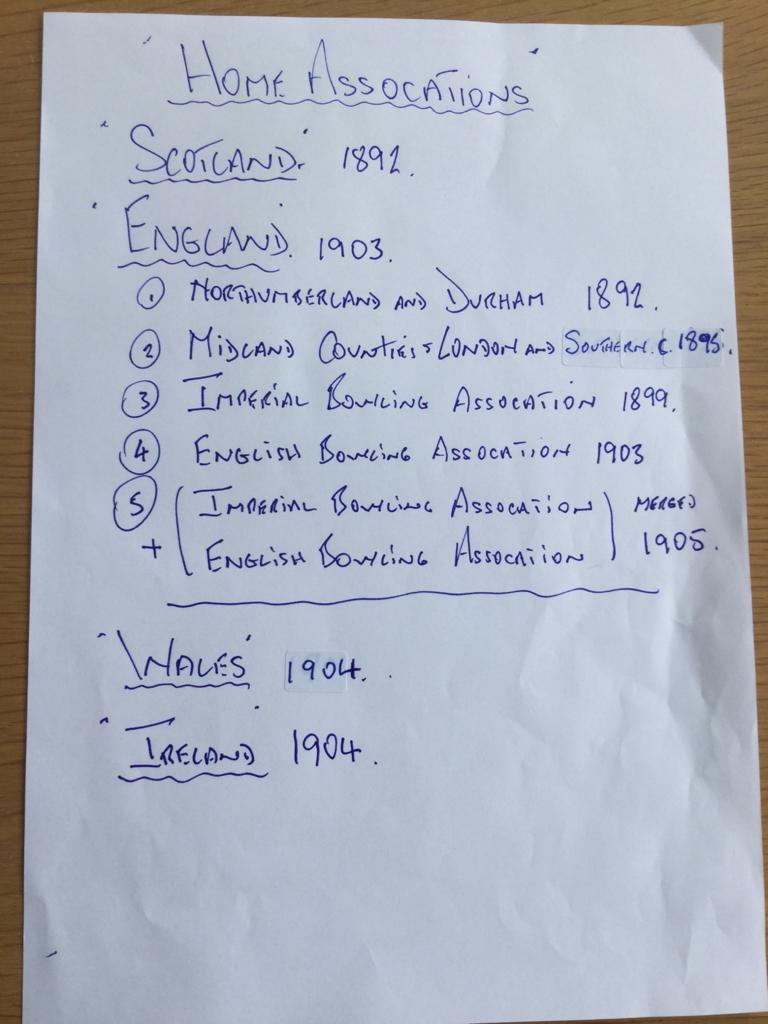 "HOME ASSOCATIONS"
"SCOTLAND." 1892.
"ENGLAND". 1903.
① NORTHUMBERLAND AND DURHAM 1892.
② MIDLAND COUNTIES + LONDON AND SOUTHERN. C. 1895.
③ IMPERIAL BOWLING ASSOCATION 1899.
④ ENGLISH BOWLING ASSOCATION 1903
⑤ (IMPERIAL BOWLING ASSOCATION) MERGED
+ (ENGLISH BOWLING ASSOCATION) 1905.
"WALES" 1904.
"IRELAND" 1904.